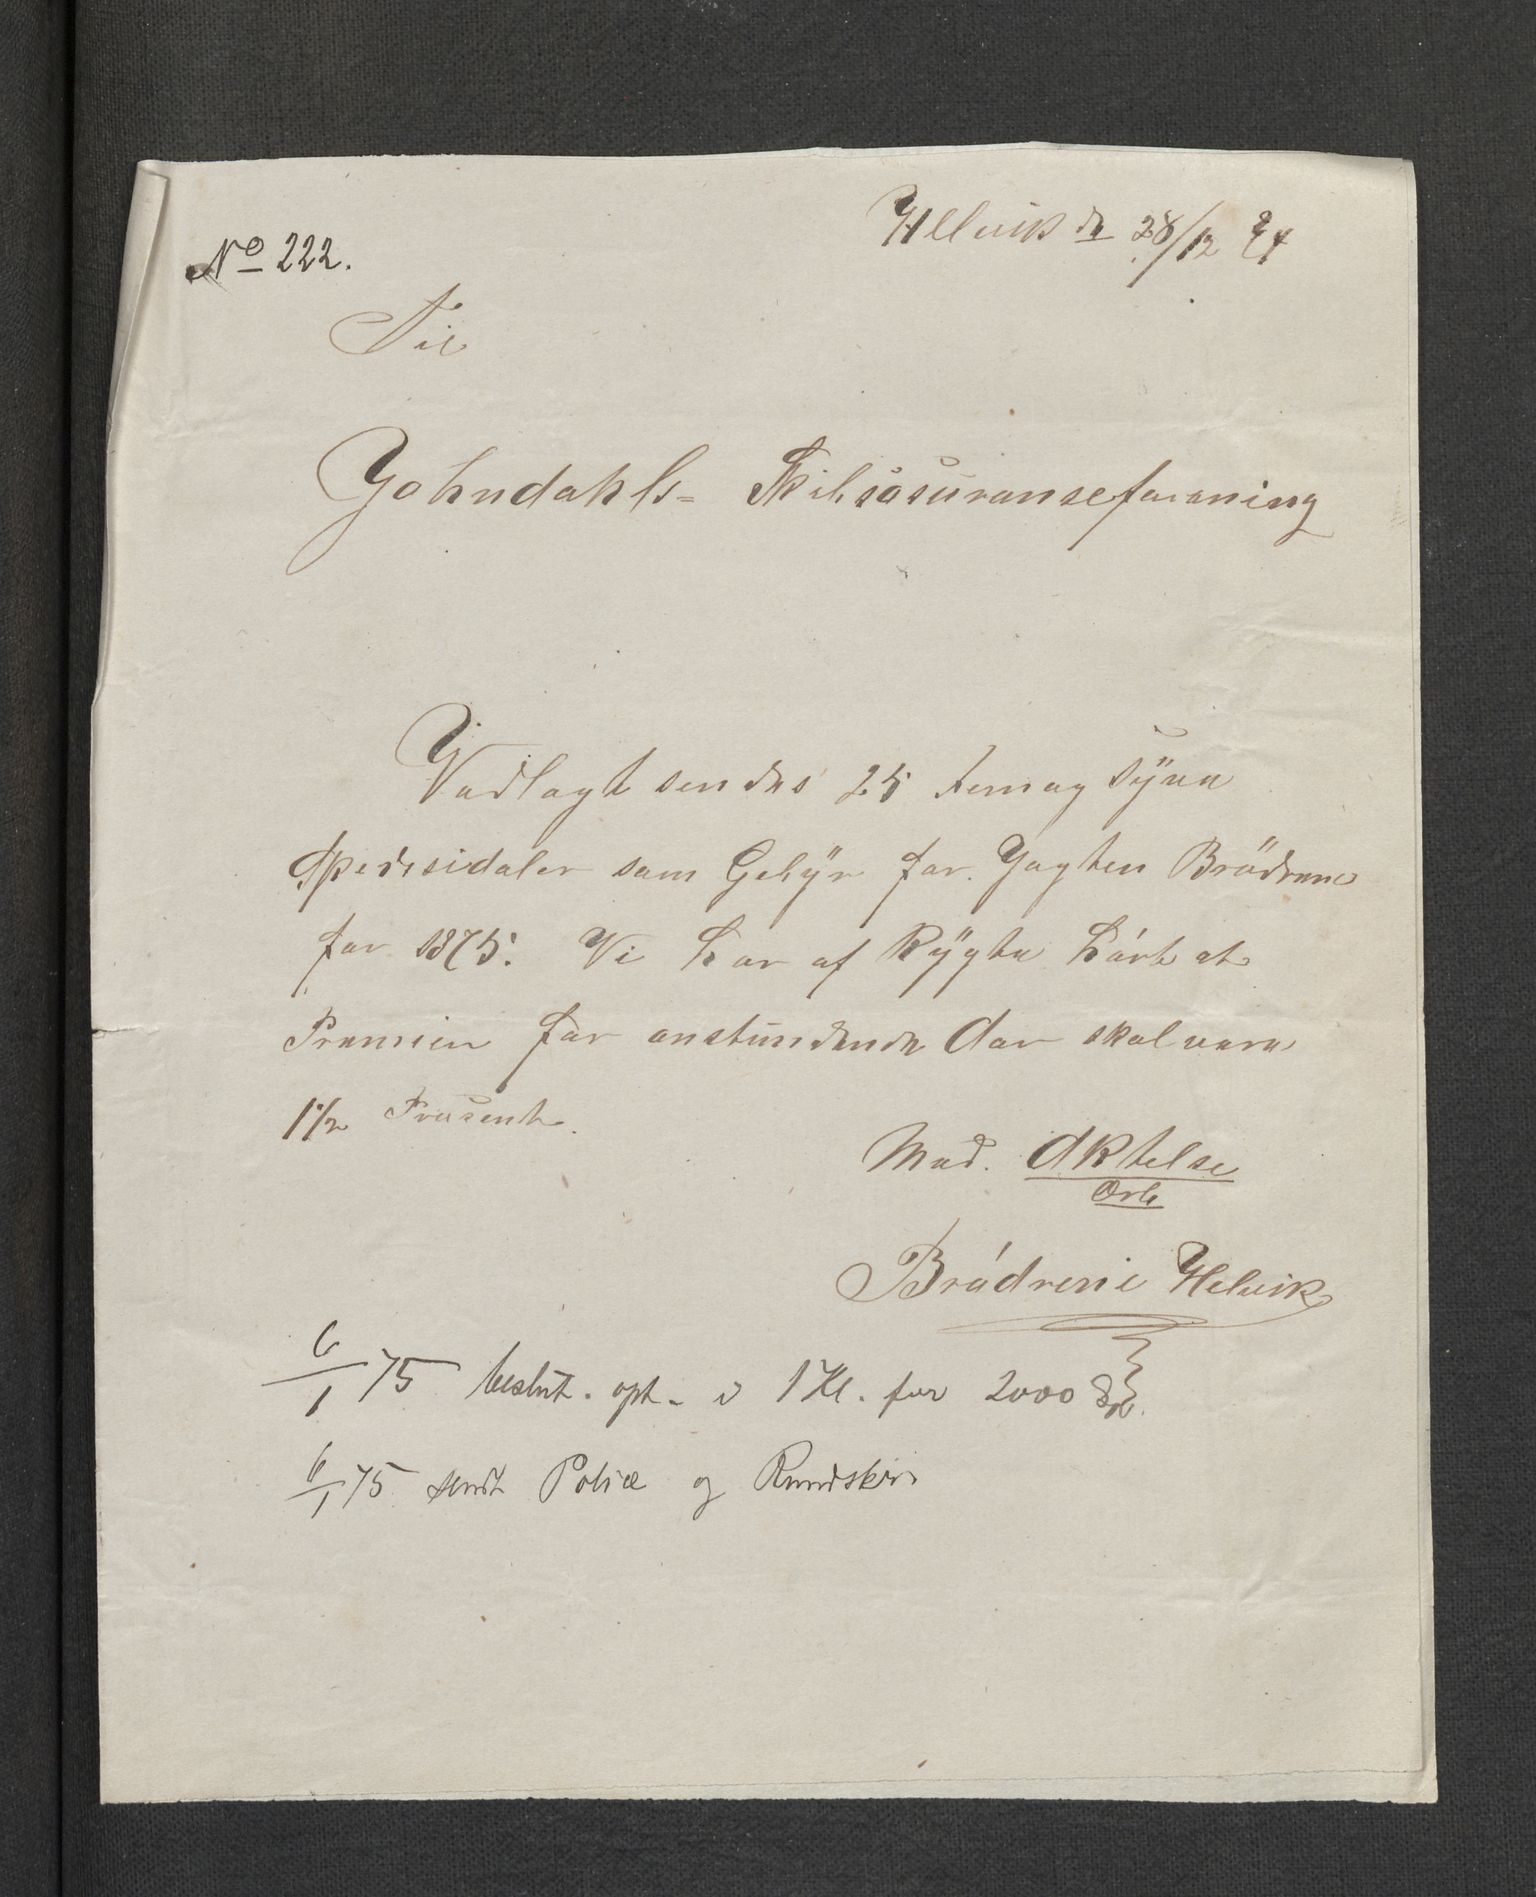 No 222.
Hellvik d. 28/12 74
Til
Johndahls- Skibsasuranseforening
Vedlagt sendes 25 Femog Tÿve
Spedesidaler som Gebÿr for Jagten Brödrene
for 1875. Vi har af Rÿgte hört at
Premien for anstundende Aar skal vere
1½ Prosent.
Med. Aktelse
Erb
Brödrene Helvik
6/1 75 beslut. opt. i 1 Kl. for 2000 Spd.
6/1 75 sendt Police og Rundskr.